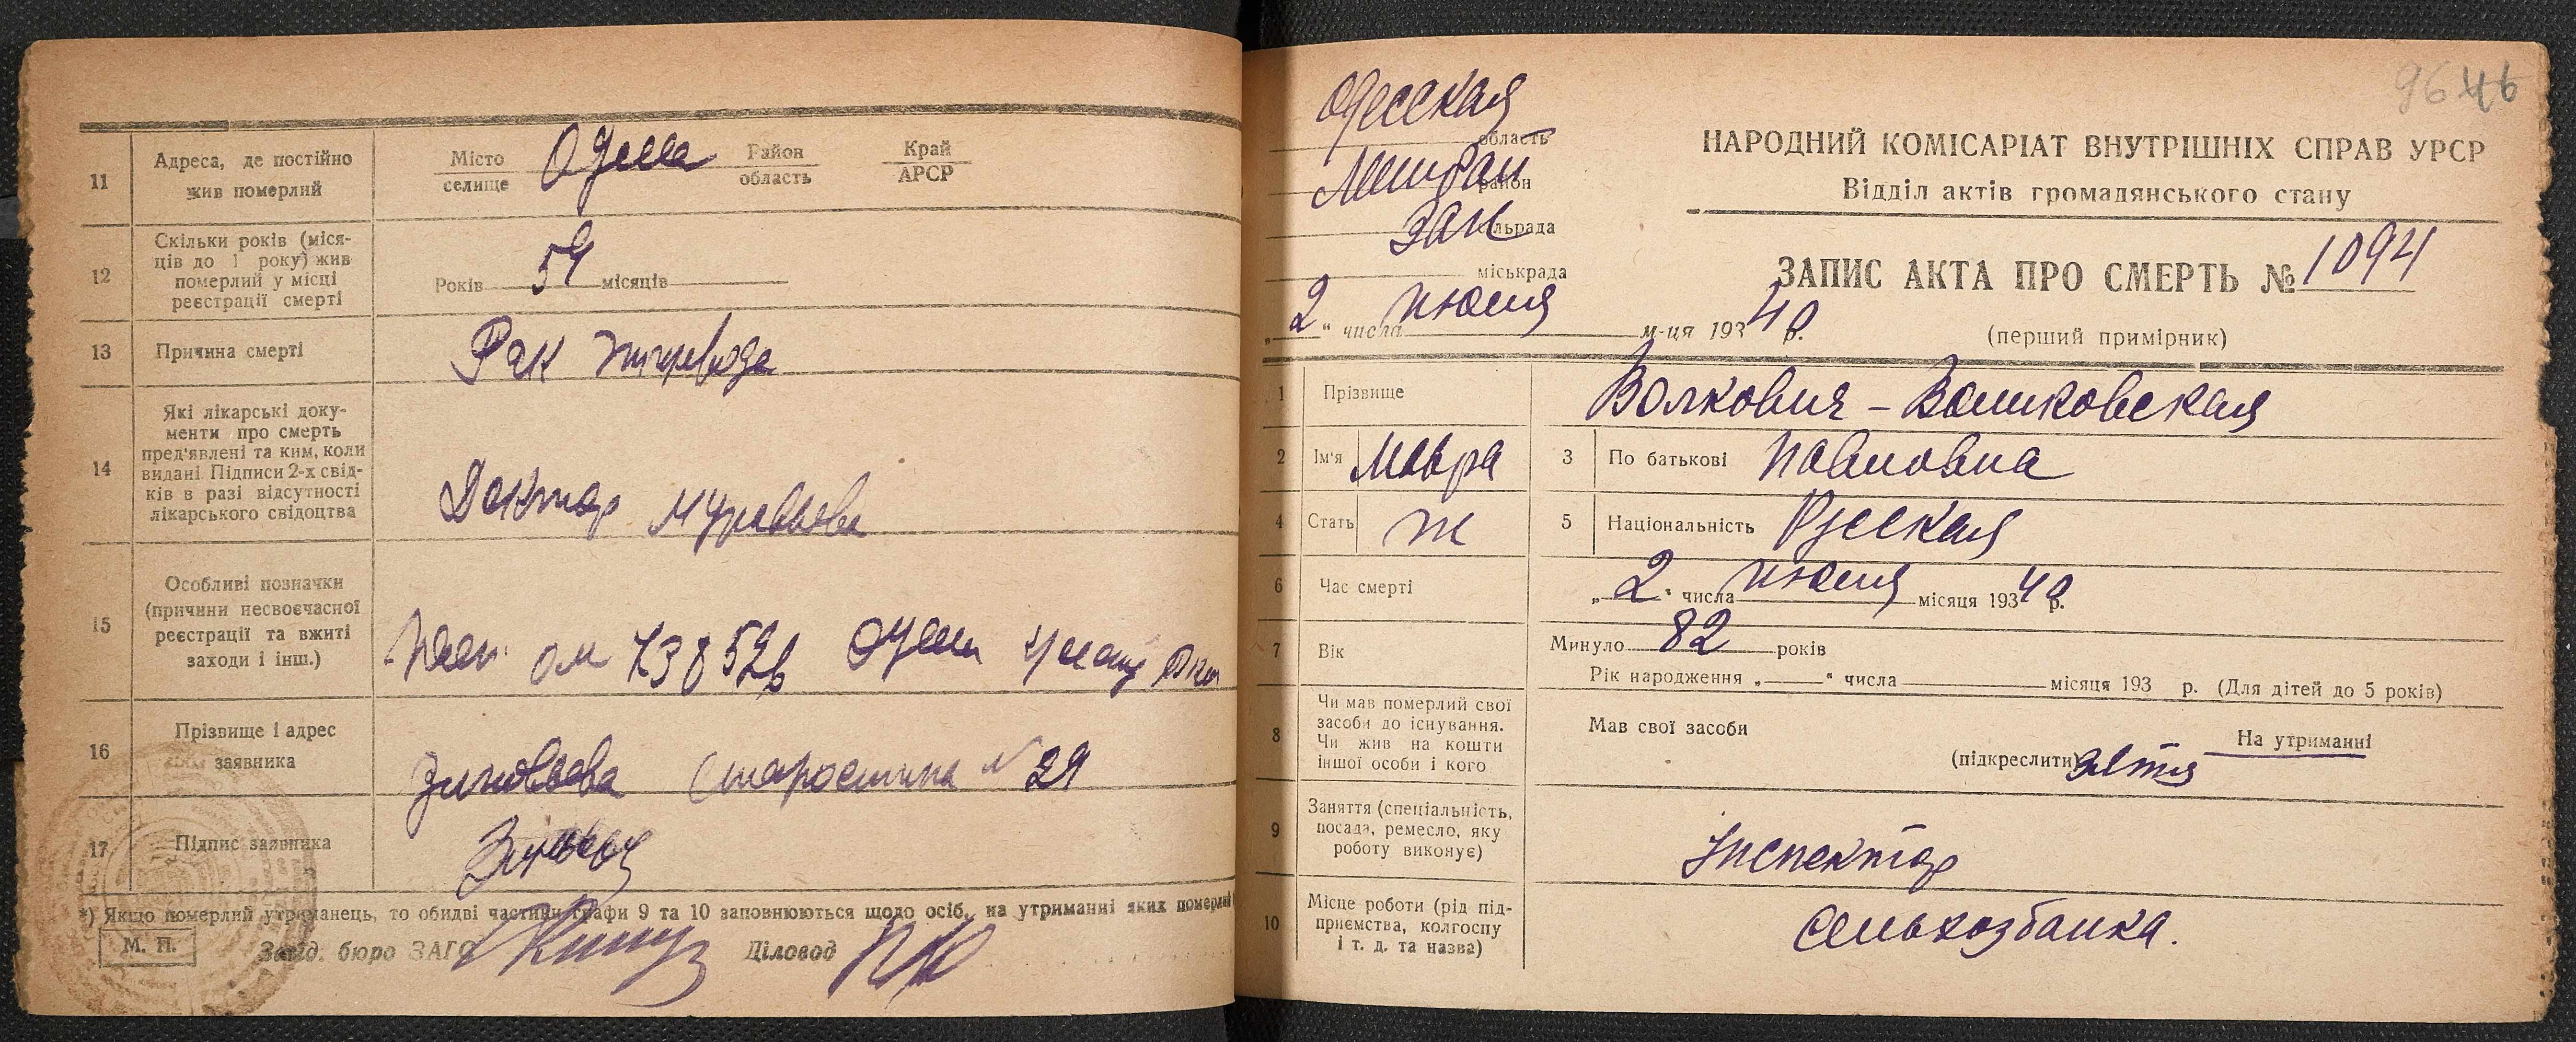 11
Адреса, де постійно
жив померлий
Місто
селище
Одесса
Район
область
Край
АРСР
12
Скільки років (міся-
ців до 1 року) жив
померлий у місці
реєстрації смерті
Років 54 місяців
13
Причина смерті
Рак
14
Які лікарські доку-
менти про смерть
пред'явлені та ким, коли
видані. Підписи 2-х свід-
ків в разі відсутності
лікарського свідоцтва
Доктор Муравьева
15
Особливі позначки
(причини несвоєчасної
реєстрації та вжиті
заходи і інш.)
16
Прізвище і адрес
заявника
Зиновьева Старостина № 29
17
Підпис заявника
*) Якщо померлий утриманець, то обидві частини графи 9 та 10 заповнюються щодо осіб, на утриманні яких померлий
М. П.
Завід. бюро ЗАГС
Діловод
96 46
Одесская
область
район
ЗАГС
сільрада
міськрада
„2“ числа июня м-ця 1940 р.
НАРОДНИЙ КОМІСАРІАТ ВНУТРІШНІХ СПРАВ УРСР
Відділ актів громадянського стану
ЗАПИС АКТА ПРО СМЕРТЬ № 1094
(перший примірник)
1
Прізвище
Волкович-Волшковская
2
Ім'я
Мавра
3
По батькові
Павловна
4
Стать
ж
5
Національність
Русская
6
Час смерті
„2“ числа июня місяця 1940 р.
7
Вік
Минуло 82 років
Рік народження „ “ числа місяця 193 р. (Для дітей до 5 років)
8
Чи мав померлий свої
засоби до існування.
Чи жив на кошти
іншої особи і кого
Мав свої засоби
(підкреслити)
На утриманні
зятя
9
Заняття (спеціальність,
посада, ремесло, яку
роботу виконує)
Інспектор
10
Місце роботи (рід під-
приємства, колгоспу
і т. д. та назва)
Сельхозбанка.